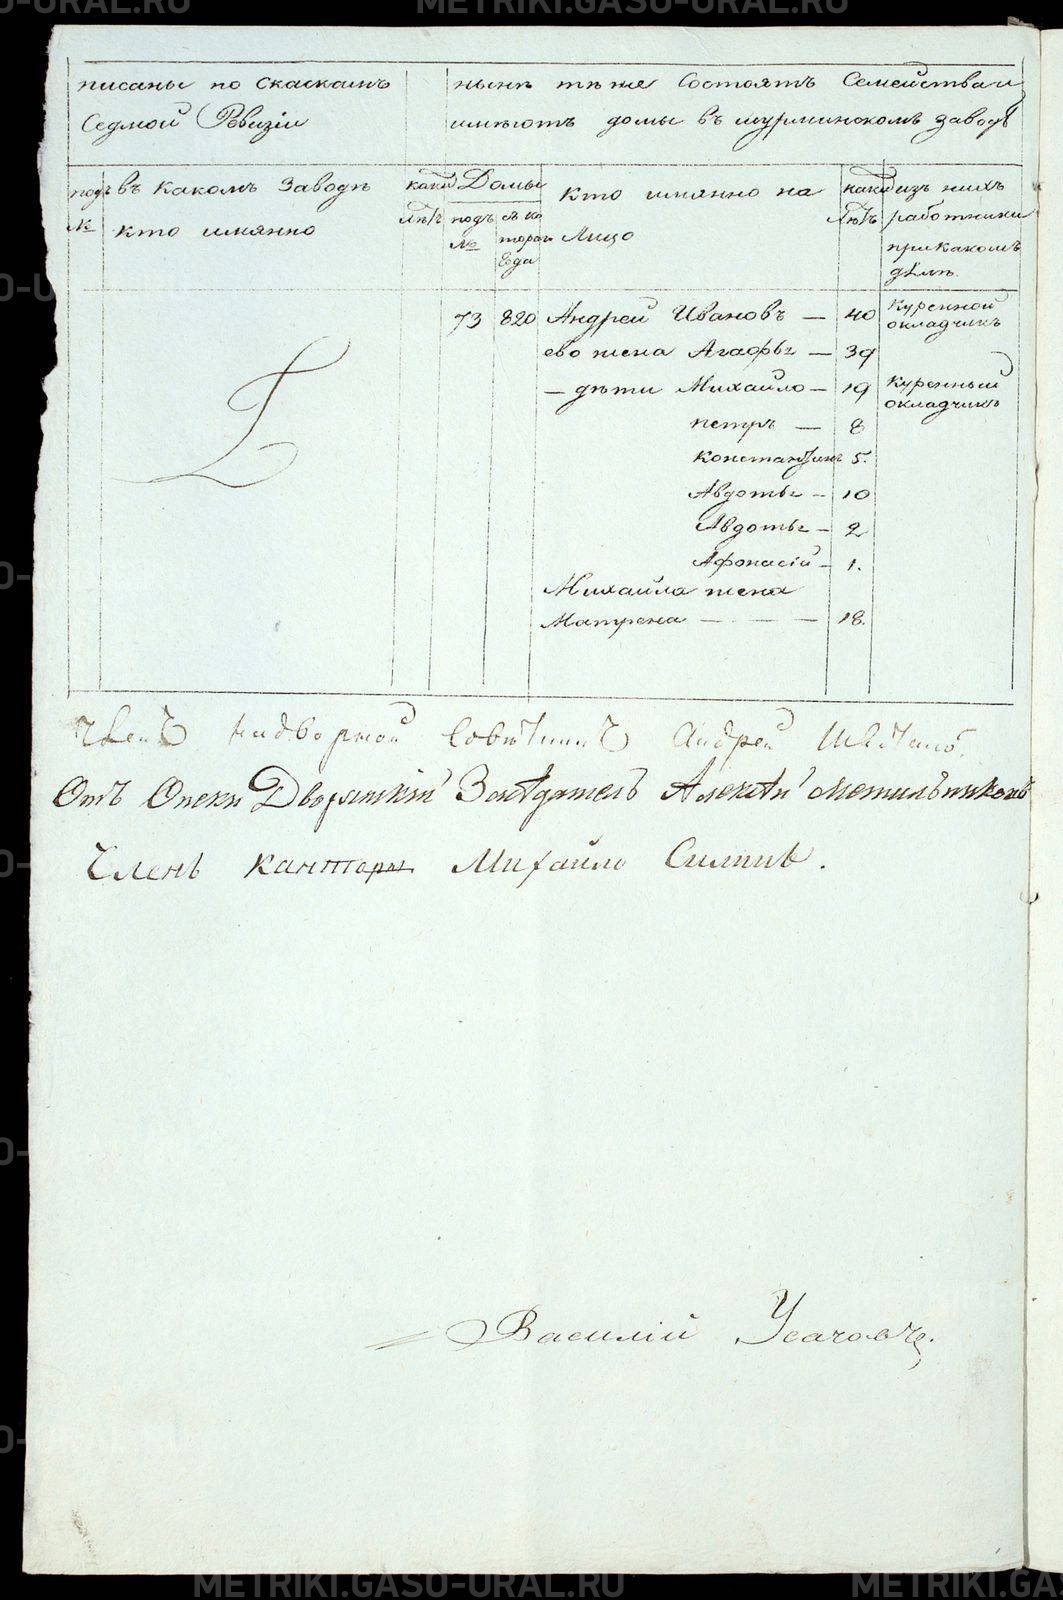 METRIKI.GASO-URAL.RU
писаны по скаскамъ
Седмой Ревизіи
нынѣ тѣ же Состоятъ Семействами
имѣютъ домы въ шурминскомъ заводѣ
подъ №
въ какомъ заводѣ
кто имянно
какихъ лѣтъ
Домы
подъ №
съ ко
тораго
года
кто имянно на
Лицо
какихъ лѣтъ
изъ нихъ
работники
при какомъ
дѣлѣ
73 820 Андрей Ивановъ — 40 куренной
окладчикъ
ево жена Агафья — 39
— дѣти Михайло — 19 куренный
окладчикъ
петръ — 8
константинъ 5.
Авдотья — 10
Авдотья — 2
Афонасій — 1.
Михайла жена
Матрена — — — 18.
Членъ надворной Совѣтникъ Андрей
Отъ Опеки Дворянскій Засѣдатель Алексѣй Метильниковъ
Членъ канторы Михайло
Василій Усачовъ.
METRIKI.GASO-URAL.RU